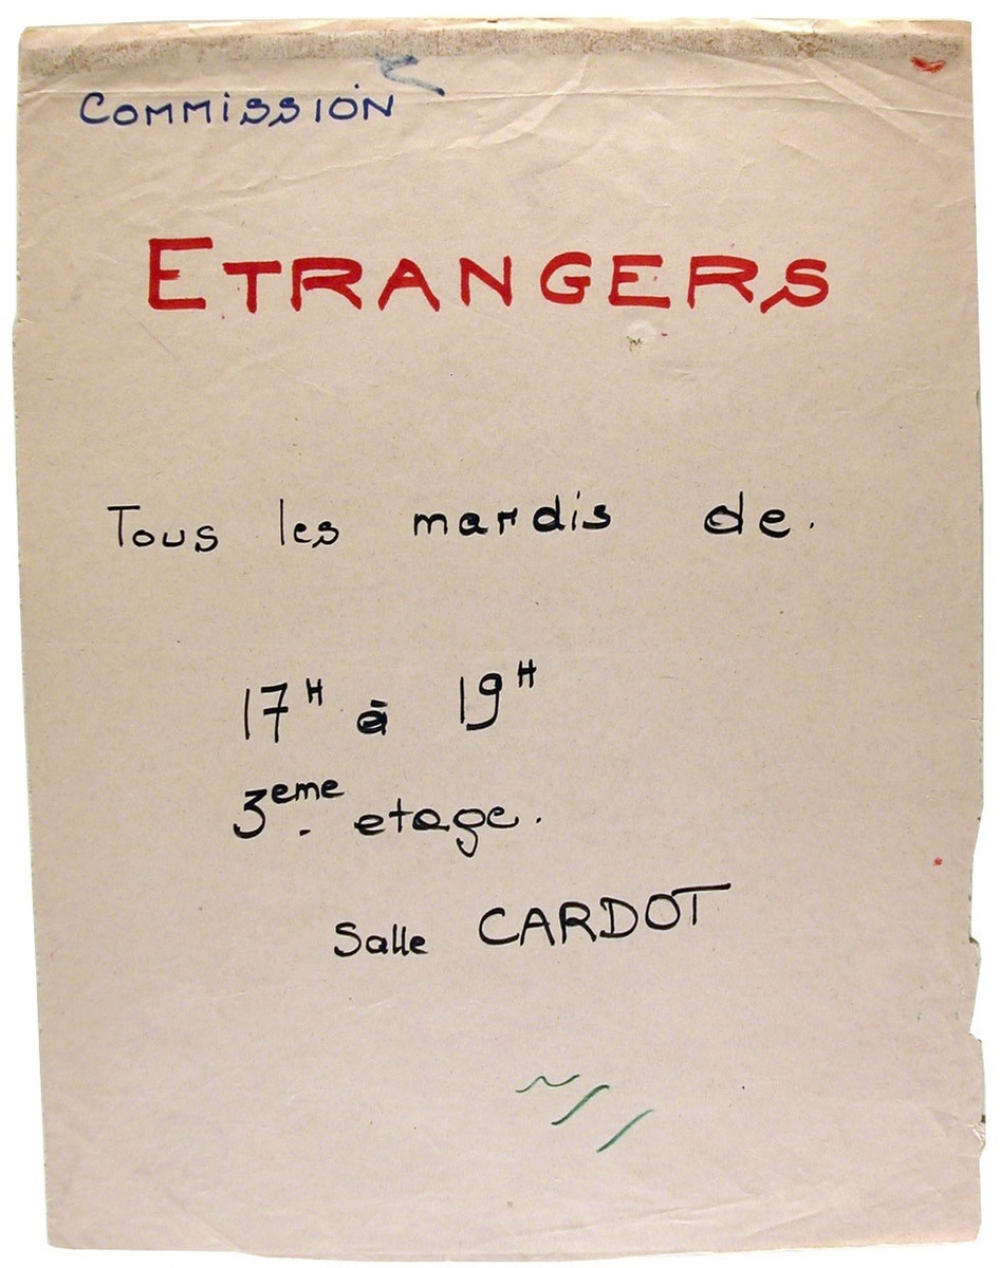 COMMISSION
ETRANGERS
Tous les mardis de.
17H à 19H
3eme. etage.
Salle CARDOT